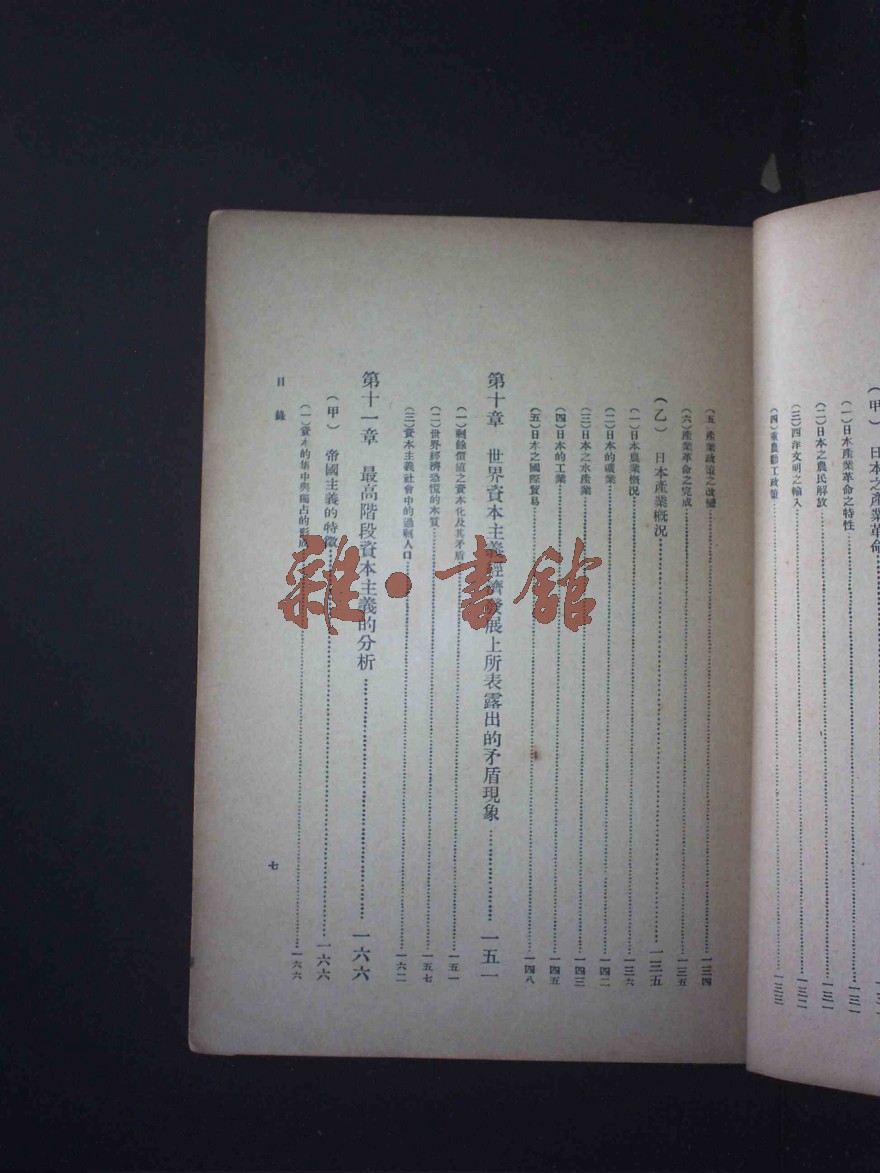 (甲) 日本之產業革命
(一)日本產業革命之特性……一三一
(二)日本之農民解放……一三一
(三)西洋文明之輸入……一三二
(四)重農勸工政策……一三三
(五)產業政策之改變……一三四
(六)產業革命之完成……一三五
(乙) 日本產業概況……一三五
(一)日本農業概況……一三六
(二)日本的礦業……一四二
(三)日本之水產業……一四三
(四)日本的工業……一四五
(五)日本之國際貿易……一四八
第十章 世界資本主義經濟發展上所表露出的矛盾現象……一五一
(一)剩餘價值之資本化及其矛盾……一五一
(二)世界經濟恐慌的本質……一五七
(三)資本主義社會中的過剩人口……一六二
第十一章 最高階段資本主義的分析……一六六
(甲) 帝國主義的特徵……一六六
(一)資本的集中與獨占的形成……一六六
目錄
七
雜·書館